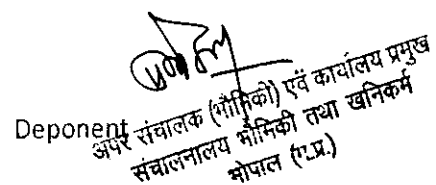 Deponent
अपर संचालक (भौमिकी) एवं कार्यालय प्रमुख
संचालनालय भौमिकी तथा खनिकर्म
भोपाल (म.प्र.)